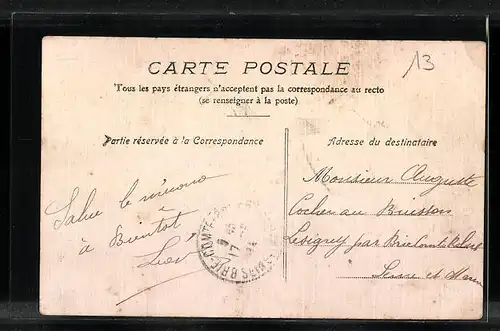 CARTE POSTALE
13
Tous les pays étrangers n'acceptent pas la correspondance au recto
(se renseigner à la poste)
Partie réservée à la Correspondance
Adresse du destinataire
Salue le
à Bientôt
Monsieur Auguste
Cocher au Buisson
Lésigny par Brie Comte Robert
Seine et Marne
BRIE-COMTE